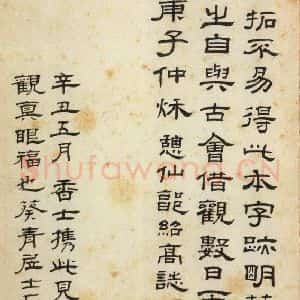 拓不易得此本字跡明
之自與古會借觀數日
庚子仲秌憩仙
高誌
辛丑五月香士攜此見
觀真眼福也葵青居士
Shufawang.CN